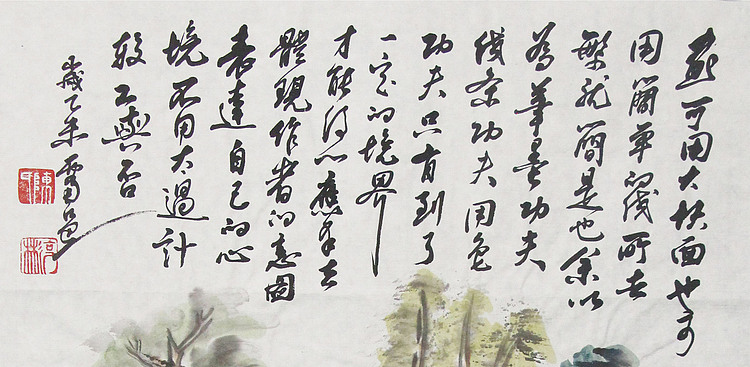 可用大块面也可
用簡單的线所去
繁就簡是也余以
為筆墨功夫
线条功夫用色
功夫只有到了
一定的境界
才能得心應手去
體現作者的意图
表達自己的心
境不用太過計
較工與否
歲乙未